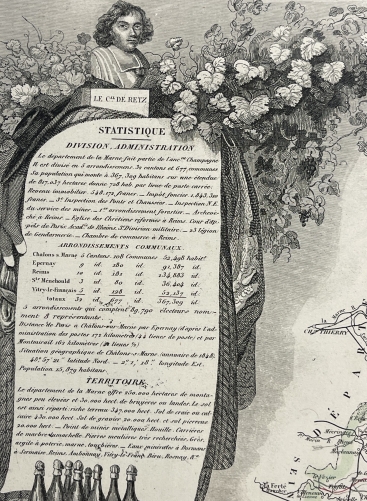 LE C.al DE RETZ
STATISTIQUE
DIVISION, ADMINISTRATION
Le département de la Marne fait partie de l'anc.ne Champagne
Il est divisé en 5 arrondissemens 32 cantons et 677 communes
Sa population qui monte à 367,309 habitans sur une étendue
de 817,037 hectares donne 708 hab. par lieue de poste carrée
Revenu 548,171, francs _ Impôt foncier 1,843,
francs _ Inspection des Ponts et Chaussées _ Inspection
du service des mines _ arrondissement forestier _
à Reims _ Eglise des Chrétiens réformés à Reims Cour d'Ap-
pels de Paris de Rheims Division militaire _ légion
de Gendarmerie _ Chambre de commerce à Reims.
ARRONDISSEMENTS COMMUNAUX.
Châlons s Marne 5 Cantons 108 Communes 52,498 habit.s
Epernay 9 id. 180 id. 91,387 id.
Reims 10 id. 181 id. 134,883 id.
S.te Menehould 3 id. 80 id. 36,404 id.
Vitry-le-français 5 id. 128 id. 52,137 id.
totaux 32 id. 677 id. 367,309 id.
5 arrondissements qui comptent 89,790 électeurs nom-
ment 8 représentants
Distance de Paris à Châlons sur Marne par Epernay d'après l'ad-
ministration des postes 172 kilomètres (44 lieues de poste) et par
Montmirail 162 kilomètres
Situation géographique de Châlons s Marne (annuaire de 1848)
48° 57' 21" latitude Nord. _ 2° 1' 18" longitude Est.
Population 15,879 habitans.
TERRITOIRE.
Le département de la Marne offre 250,000 hectares de monta-
gnes peu élevées et 30,000 hect. de bruyères ou landes. Le sol
est ainsi réparti riche terreau 347,000 hect. Sol de craie ou cal-
caire 430,000 hect. Sol de gravier 20,000 hect. et sol pierreux
20,000 hect _ Point de mines métalliques Houille. Carrières
de marbre Pierres meulières très recherchées, Grès,
argile à poterie, marne, tourbières _ Eaux minérales à
Sermaize Reims, Ambonnay, Vitry-le-franç.
CH.au THIERRY
la Ferté